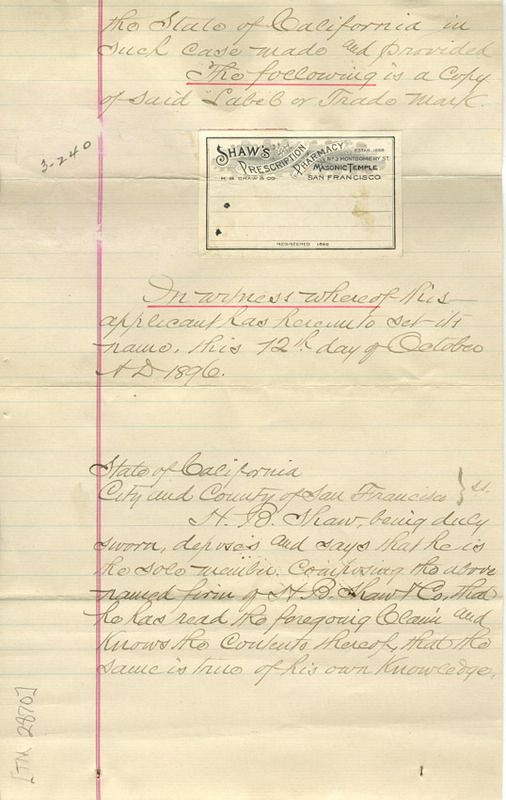 the State of California in
such case made and provided
The following is a Copy
of said "Label" or Trade Mark.
3-240
SHAW'S
PRESCRIPTION
PHARMACY
ESTAB. 1866
No 3 MONTGOMERY ST.
MASONIC TEMPLE
H. B. SHAW & CO.
SAN FRANCISCO
REGISTERED 1896
In witness whereof this
applicant has hereunto set its
name, this 12th day of October
A D 1896.
State of California
City and County of San Francisco } ss.
H. B. Shaw, being duly
sworn, deposes and says that he is
the sole member composing the above
named firm of H. B. Shaw & Co, that
he has read the foregoing Claim and
Knows the Contents thereof, that the
same is true of his own Knowledge,
[TM 2870]